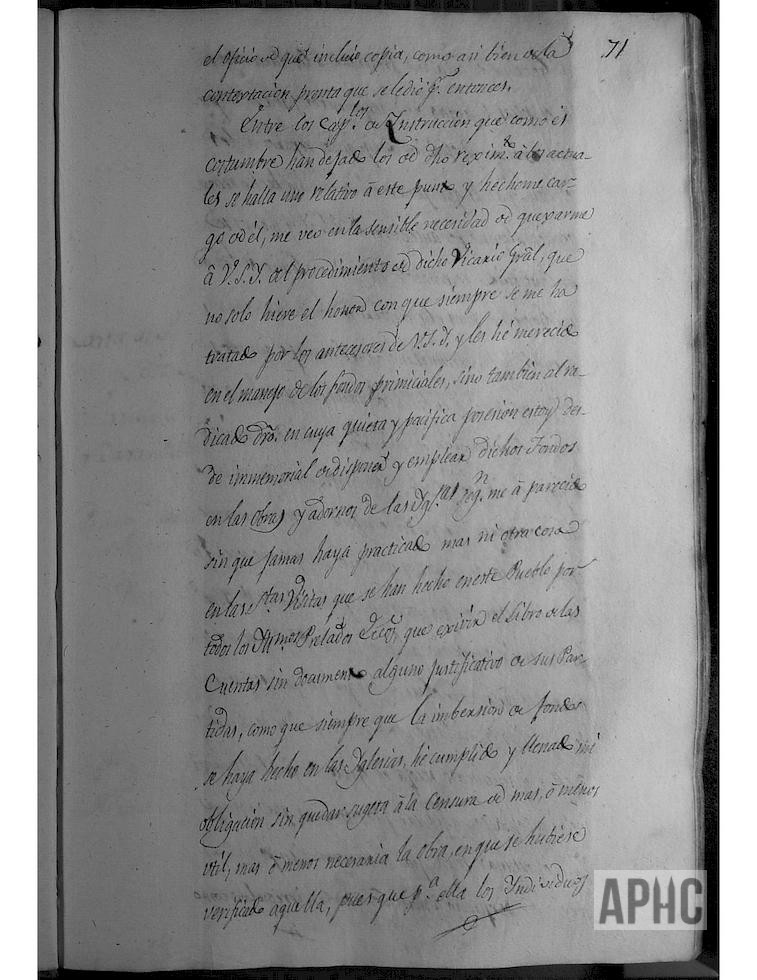 71
el oficio de que incluio copia, como asi bien de la
contextacion pronta que se le dió p.r entonces.
Entre los Cap.los de Instruccion que como és
costumbre han dejado los de dho rexim.to à los actua-
les se halla uno relativo à este punto y hechome car-
go de él, me veo en la sensible necesidad de quexarme
â V.S.Y. del procedimiento de dicho Vicario Grâl, que
no solo hiere el honor con que siempre se me ha
tratado por los antecesores de V.S.Y. y les hé merecido
en el manejo de los fondos primiciales, sino tambien al ra-
dicado dro. en cuya quieta y pacifica posesion estoy des-
de immemorial de disponer y emplear dichos Fondos
en las Obras y adornos de las Ygl.ias seg.n me à parecido
sin que jamas haya practicado mas ni otra cosa
en las S.tas Visitas que se han hecho en este Pueblo por
todos los Ill.mos Prelados que exivir el Libro de las
Cuentas sin documento alguno justificativo de sus Par-
tidas, como que siempre que la imbersion de fondos
se haya hecho en las Yglesias, hé cumplido y llenado mi
obligacion sin quedar sugeta â la Censura de mas, ô menos
util, mas ô menos necesaria la obra, en que se hubiese
verificado aquella, pues que p.a ella los Individuos
APHC